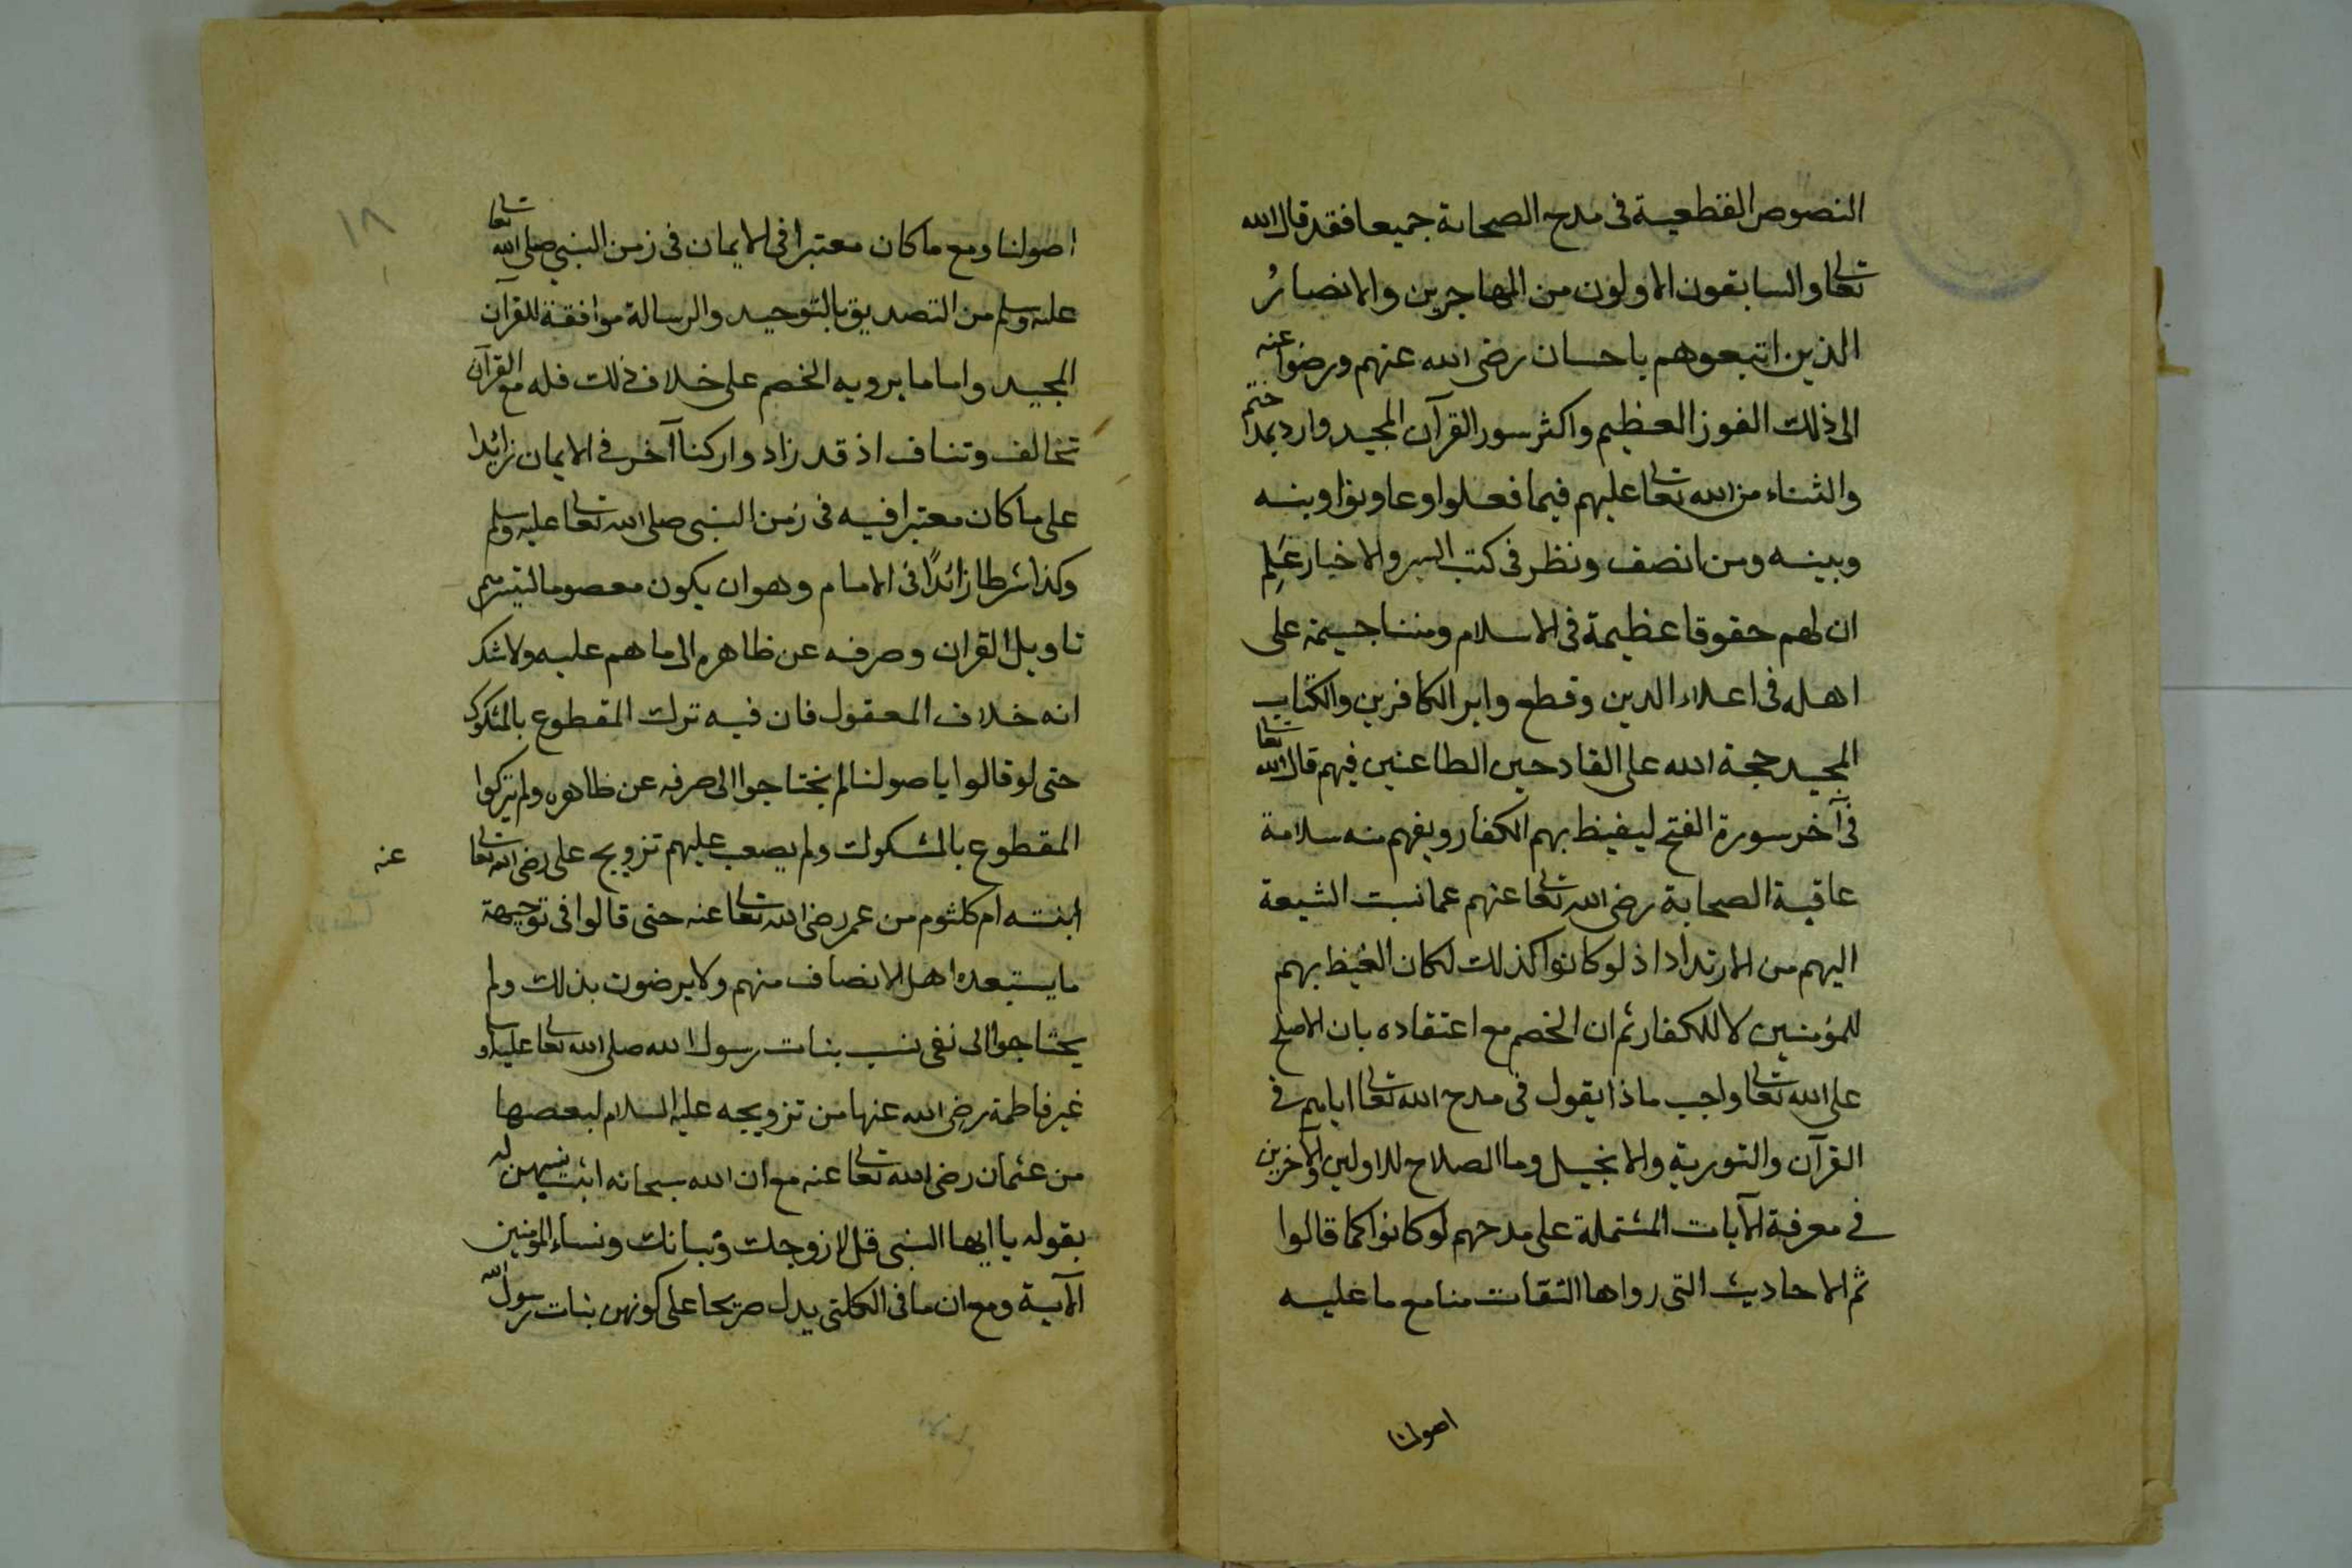 النصوص القطعية فى مدح الصحابة جميعا فقد قال الله
تعالى والسابقون الاولون من المهاجرين والانصارُ
الذين اتبعوهم باحسان رضى الله عنهم ورضوا عنه
الى ذلك الفوز العظيم واكثر سور القرآن المجيد وارد بمد حهم
والثناء من الله تعالى عليهم فيما فعلوا وعاونوا وبنه
وبينه ومن انصف ونظر فى كتب السير والاخيار عَلِم
ان لهم حقوقا عظيمة فى الاسلام ومننا جسيمة على
اهله فى اعلاء الدين وقطع وابر الكافرين والكتاب
المجيد حجة الله على القادحين الطاعنين فيهم قال الله تعالى
فى آخر سورة الفتح ليغيظ بهم الكفار ويفهم منه سلامة
عاقبة الصحابة رضى الله تعالى عنهم عما نسبت الشيعة
اليهم من الارتداد اذ لو كانوا كذلك لكان الغيظ بهم
للمؤمنين لا للكفار ثم ان الخصم مع اعتقاده بان الاصلح
على الله تعالى واجب ماذا يقول فى مدح الله تعالى اياهم فى
القرآن والتورية والانجيل وما الصلاح للاولين والآخرين
فى معرفة الآيات المشتملة على مدحهم لو كانوا كما قالوا
ثم الاحاديث التى رواها الثقات منا مع ما عليه
اصولنا
١٨
اصولنا ومع ما كان معتبرا فى الايمان فى زمن النبى صلى الله تعالى
عليه وسلم من التصديق بالتوحيد والرسالة موافقة للقرآن
المجيد واما ما يرويه الخصم على خلاف ذلك فله مع القرآن
تخالف وتناف اذ قد زادوا ركنا آخر فى الايمان زائدا
على ما كان معتبرا فيه فى زمن النبى صلى الله تعالى عليه وسلم
وكذا شرطا زائدًا فى الامام وهو ان يكون معصوما ليتسر لهم
تاويل القران وصرفه عن ظاهره الى ما هم عليه ولا شك
انه خلاف المعقول فان فيه ترك المقطوع بالمشكوك
حتى لو قالوا باصولنا لم يحتاجوا الى صرفه عن ظاهره ولم يتركوا
المقطوع بالمشكوك ولم يصعب عليهم تزويج على رضى الله تعالى عنه
ابنته ام كلثوم من عمر رضى الله تعالى عنه حتى قالوا فى توجيهه
ما يستبعده اهل الانصاف منهم ولا يرضون بذلك ولم
يحتاجوا الى نفى نسب بنات رسول الله صلى الله تعالى عليه وسلم
غير فاطمة رضى الله عنها من تزويجه عليه السلام لبعضها
من عثمان رضى الله تعالى عنه مع ان الله سبحانه اثبت نسبهن له
بقوله يا ايها النبى قل لازوجك وبناتك ونساء المؤمنين
الآية ومع ان ما فى الكلتى يدل صريحا على كونهن بنات رسول الله